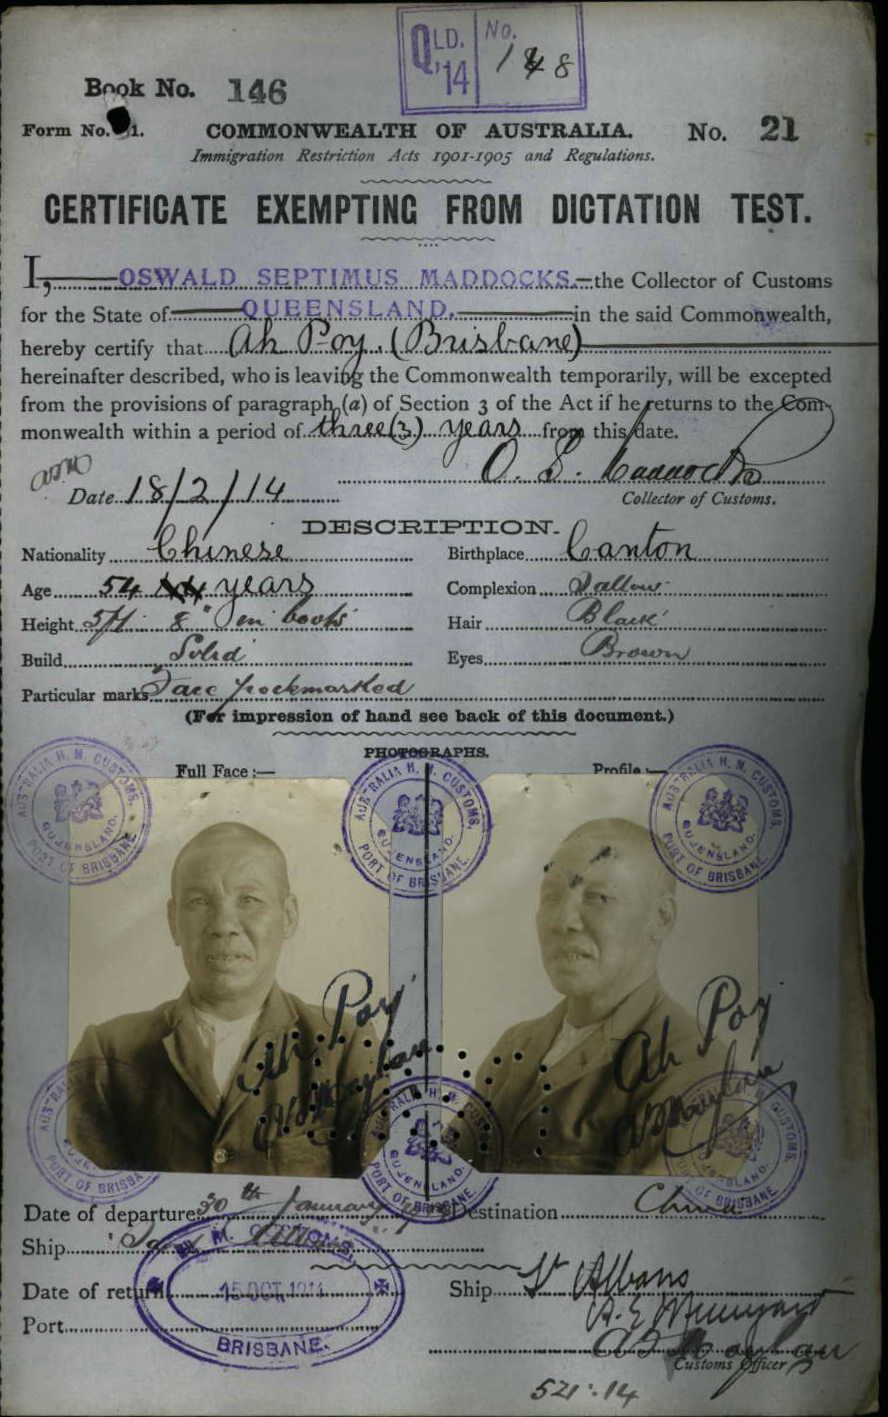 QLD. '14 No. 148
Book No. 146
Form No. 21.
COMMONWEALTH OF AUSTRALIA. No. 21
Immigration Restriction Acts 1901-1905 and Regulations.
CERTIFICATE EXEMPTING FROM DICTATION TEST.
I, OSWALD SEPTIMUS MADDOCKS. the Collector of Customs
for the State of QUEENSLAND. in the said Commonwealth,
hereby certify that Ah Poy. (Brisbane)
hereinafter described, who is leaving the Commonwealth temporarily, will be excepted
from the provisions of paragraph (a) of Section 3 of the Act if he returns to the Com-
monwealth within a period of three (3) years from this date.
O. S. Maddocks
Date 18/2/14 Collector of Customs.
DESCRIPTION.
Nationality Chinese Birthplace Canton
Age 54 44 years Complexion Sallow
Height 5ft 8" in boots Hair Black
Build Solid Eyes Brown
Particular marks Face pockmarked
(For impression of hand see back of this document.)
PHOTOGRAPHS.
Full Face :— Profile :—
AUSTRALIA H. M. CUSTOMS. QUEENSLAND. PORT OF BRISBANE
AUSTRALIA H. M. CUSTOMS. QUEENSLAND. PORT OF BRISBANE
AUSTRALIA H. M. CUSTOMS. QUEENSLAND. PORT OF BRISBANE
Ah Poy
Ah Poy
AUSTRALIA H. M. CUSTOMS. PORT OF BRISBANE
AUSTRALIA H. M. CUSTOMS. QUEENSLAND. PORT OF BRISBANE
AUSTRALIA H. M. CUSTOMS. PORT OF BRISBANE
Date of departure 30th January Destination China
Ship
H. M. CUSTOMS,
Date of return 15 OCT. 1914 Ship St Albans
Port
BRISBANE.
Customs Officer
521.14